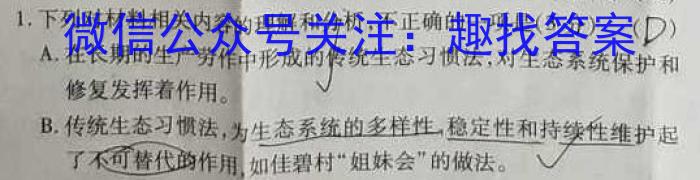 1.下列对材料相关内容的理解和分析,不正确的一项是( D )
微信公众号关注:趣找答案
A.在长期的生产劳作中形成的传统生态习惯法,对生态系统保护和
修复发挥着作用。
B.传统生态习惯法,为生态系统的多样性、稳定性和持续性维护起
了不可替代的作用,如佳碧村“姐妹会”的做法。